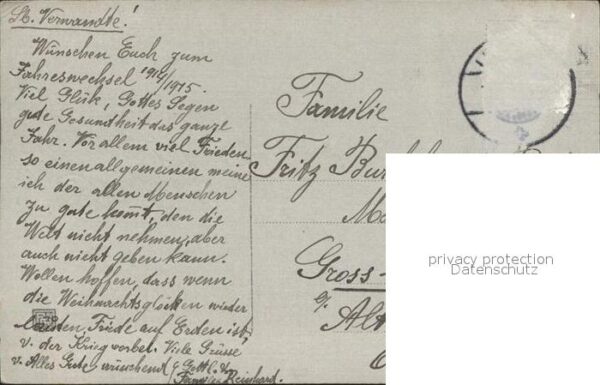 Lb. Verwandte!
Wünschen Euch zum
Jahreswechsel 1914/1915.
Viel Glück, Gottes Segen
gute Gesundheit das ganze
Jahr. Vor allem viel Frieden
so einen allgemeinen meine
ich der allen Menschen
zu gute kommt, den die
Welt nicht nehmen, aber
auch nicht geben kann.
Wollen hoffen, dass wenn
die Weihnachtsglocken wieder
läuten, Friede auf Erden ist,
u. der Krieg vorbei. Viele Grüsse
u. Alles Gute wünschend
Familie Reinhard.
Familie
Fritz
Gross-
privacy protection
Datenschutz